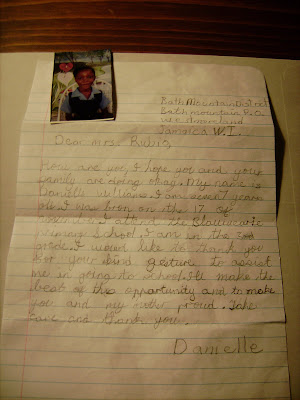 Bath Mountain District
Bath mountain P.A.
Jamaica W.I.
Dear mrs. Rubio
How are you, I hope you and your
family are doing okay. My name is
Danielle Williams. I am seven years
old. I was born on the 17 of
I attend the
primary School. I am in the
grade. I would like to thank you
for your kind gesture to assist
me in going to school. I'll make the
best of this opportunity and to make
you and my mother proud. Take
care and thank you.
Danielle